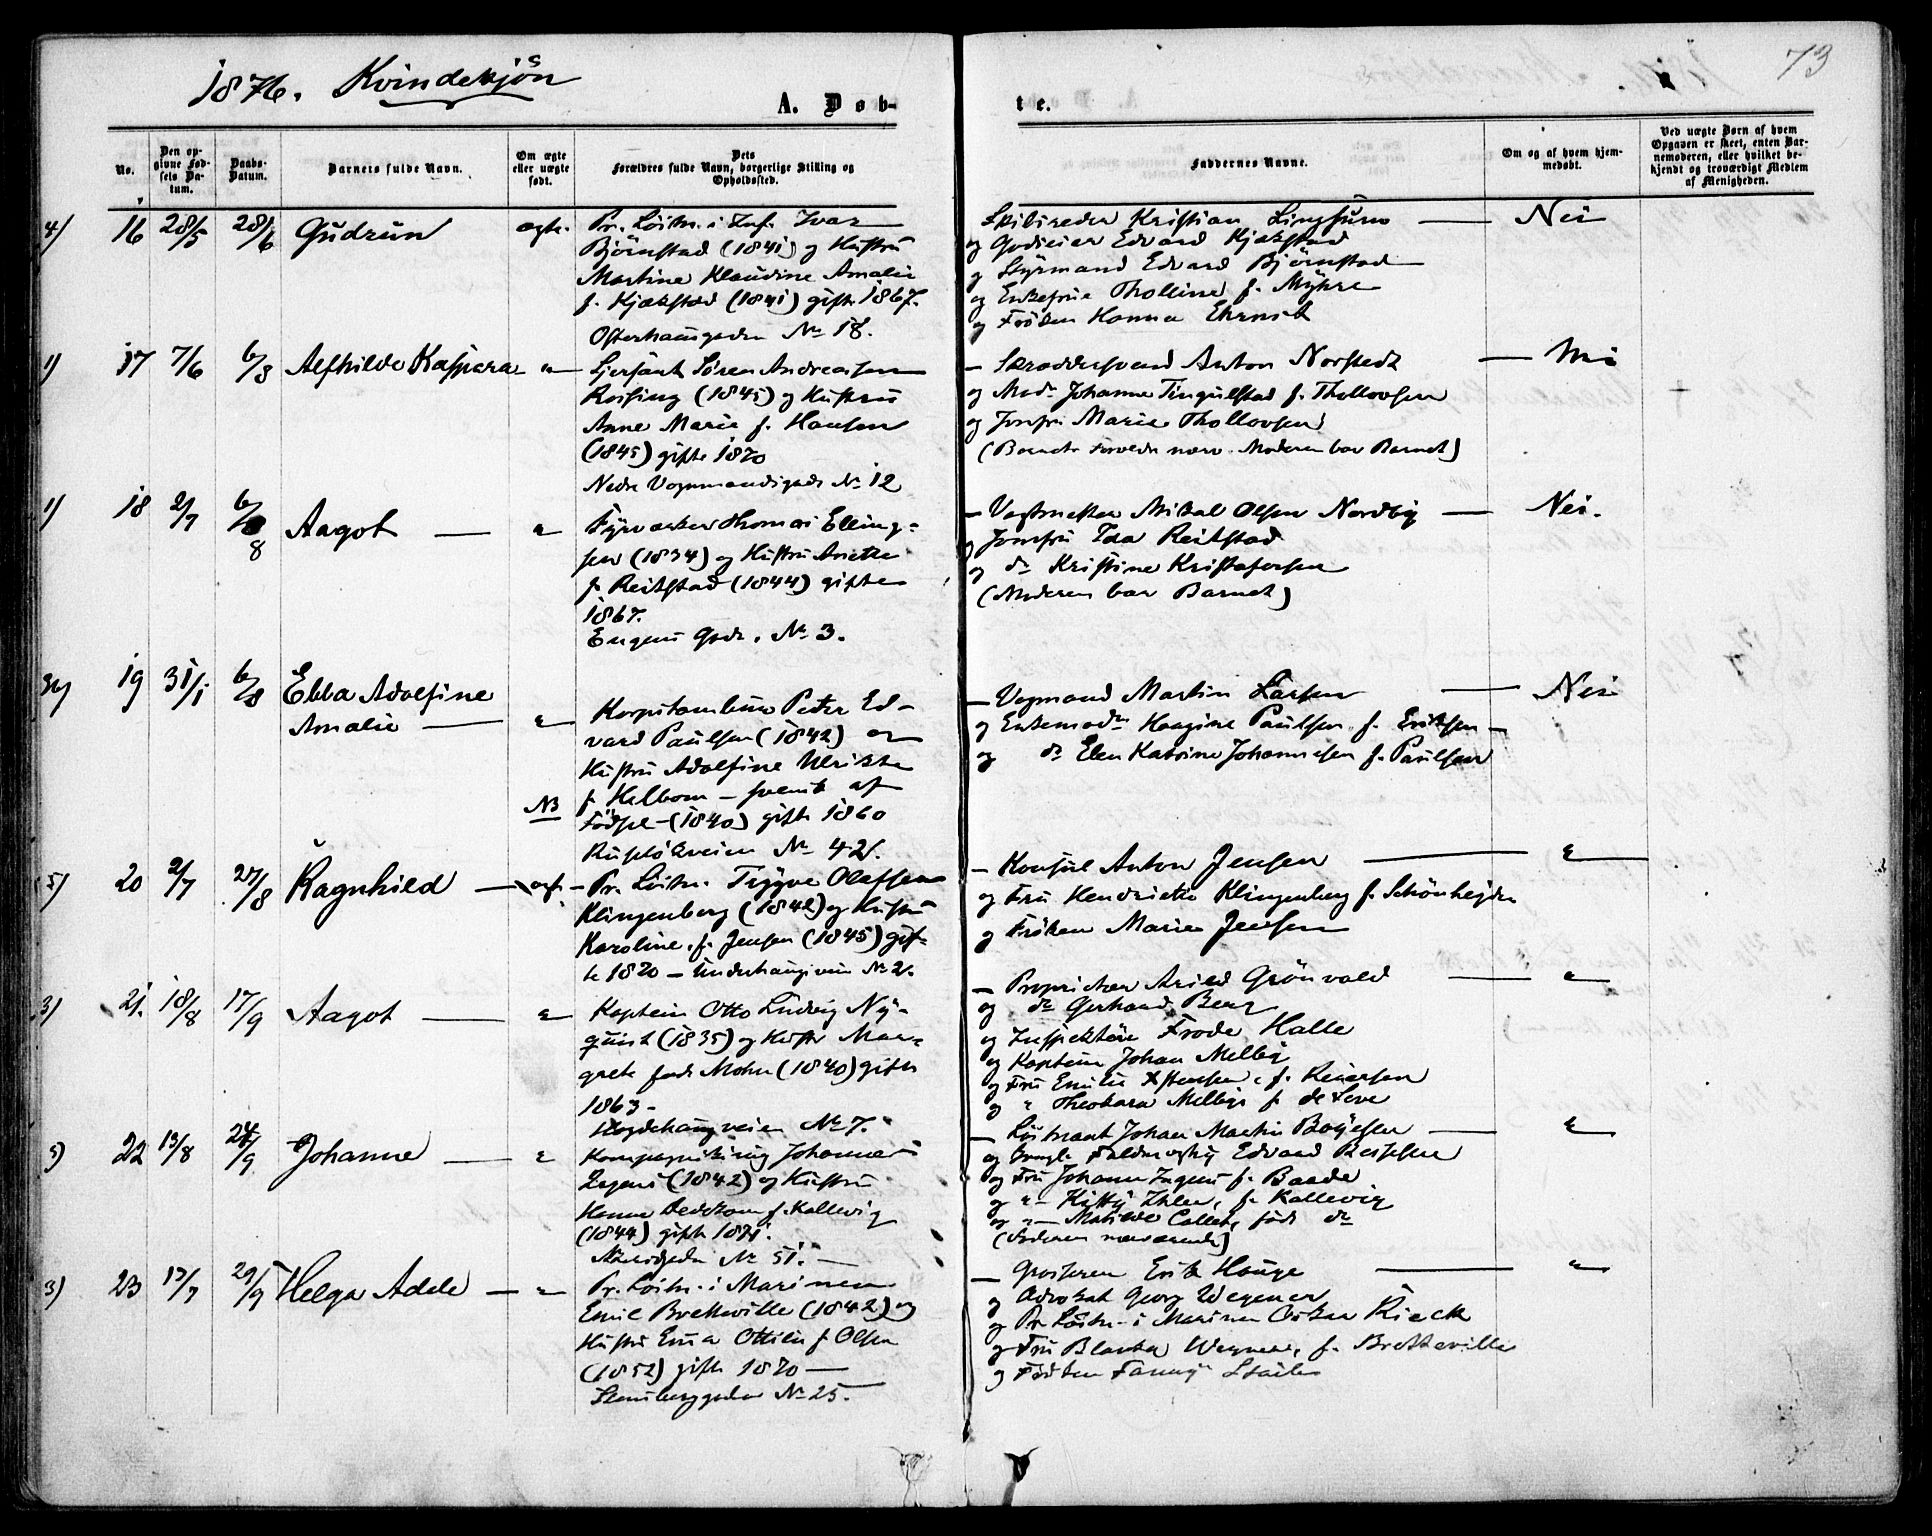 1876. Kvindekjön
73
A. Døb-
te.
No.
Den op-
givne Fød-
sels Da-
tum.
Daabs-
Datum.
Barnets fulde Navn.
Om ægte
eller uægte
født.
Dets
Forældres fulde Navn, borgerlige Stilling og
Opholdssted.
Faddernes Navne.
Om og af hvem hjem-
medøbt.
Ved uægte Børn af hvem
Opgaven er skeet, enten Bar-
nemoderen, eller hvilket be-
kjendt og troværdigt Medlem
af Menigheden.
4) 16 28/5 28/6 Gudrun ægte.
Pr. Löitn. i Inf. Ivar
Björnstad (1841) og Hustru
Martine Klaudine Amalie
f. Kjækstad (1841) gifte 1867.
Osterhausgaden No 18.
Skibsreder Kristian
og Godseier Edvard Kjækstad
og Styrmand Edvard Björnstad
og Enkefrue Tholline f. Myhre
og Fröken Hanna
Nei
1) 17 7/6 6/8 Alfhilde Kaspara
Serjant Sören Andreassen
(1845) og Hustru
Anne Marie f. Hansen
(1845) gifte 1870
Nedre Vognmandsgade No 12
Skræddersvend Anton Norstedt
og Mad. Johanne Tingulstad f. Thollovsen
og Jomfru Marie Thollovsen
(Barnets Forældre nærv. Moderen bar Barnet)
Nei
1) 18 2/7 6/8 Aagot
Fyrværker Thomas Elling-
sen (1834) og Hustru Anette
f. Reitstad (1844) gifte
1867.
Eugens Gade. No 3.
Mikal Olsen Nordby
og Jomfru Ida Reitstad
og do Kristine Kristofersen
(Moderen bar Barnet)
Nei.
19 31/1 6/8 Ebba Adolfine
Amalie
NB
Peter Ed-
vard Paulsen (1842) og
Hustru Adolfine Ulrikke
f. Helbom – svensk af
Födsel – (1840) gifte 1860
Ruselökveien No 42.
Vognmand Martin Larsen
og Enkemadm Haagine Paulsen f. Eriksen
og do Elen Katrine Johannesen f. Paulsen
Nei
5) 20 2/7 27/8 Ragnhild ægte
Pr. Löitn. Tryggve Olafsen
Klingenberg (1842) og Hustru
Karoline f. Jensen (1845) gif-
te 1870 – Underhaugsveien No 2.
Konsul Anton Jensen
og Fru Hendriette Klingenberg f. Schönheyder
og Fröken Marie Jensen
3) 21. 18/8 17/9 Aagot
Kaptein Otto Ludvig Ny-
quist (1835) og Hustr Mar-
grete född Mohn (1840) gifte
1863 –
No 7.
Proprietær Arild Grönvold
og do Gerhard Berg
og Inspektör Frode Halle
og Kaptein Johan Melbye
og Fru Emilie f. Reiersen
og " Theodora Melbye f. de Seve
5) 22 13/8 24/9 Johanne
Kompagnikirurg Johannes
(1842) og Hustru
Hanne f. Kallevig
(1844) gifte 1871.
No 51.
Löitnant Johan Martin
og Edvard
og Fru Johanne f. Baade
og " Kitty f. Kallevig
og " Matilde Collett, född do
(Faderen nærværende)
3) 23 13/7 29/9 Helga Adele
Pr. Löitn. i Marinen
Emil Bretteville (1842) og
Hustru Emma Ottilie f. Olsen
(1852) gifte 1870
Stensberggaden No 25.
Grosseren Erik Hauge
og Advokat Georg Wegener
og Pr. Löitn. i Marinen Oskar Rieck
og Fru Blanka Wegener, f. Bretteville
og Fröken Fanny